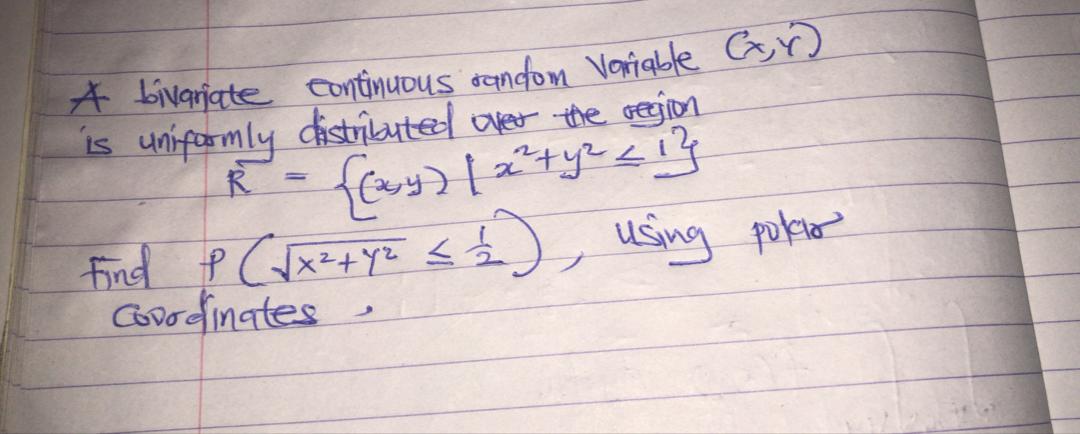 A bivariate continuous random variable (X,Y)
is uniformly distributed over the region
R = {(x,y) | x²+y² ≤ 1}
Find P(√X²+Y² ≤ 1/2), using polar
coordinates.